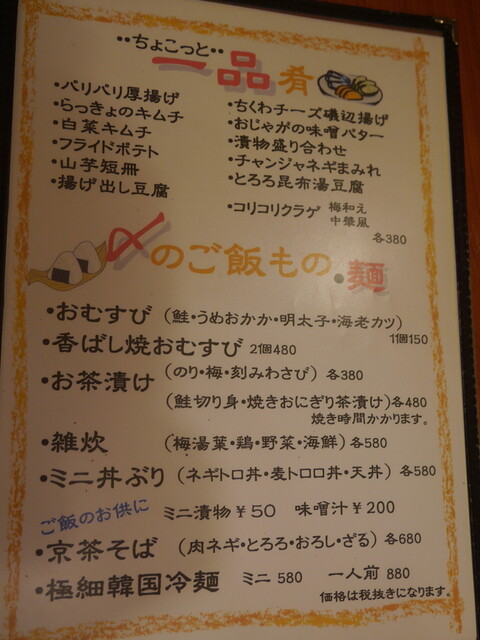 ちょこっと
一品肴
・パリパリ厚揚げ
・らっきょのキムチ
・白菜キムチ
・フライドポテト
・山芋短冊
・揚げ出し豆腐
・ちくわチーズ磯辺揚げ
・おじゃがの味噌バター
・漬物盛り合わせ
・チャンジャネギまみれ
・とろろ昆布湯豆腐
・コリコリクラゲ 梅和え
中華風
各380
〆のご飯もの・麺
・おむすび (鮭・うめおかか・明太子・海老カツ)
1個150
・香ばし焼おむすび 2個480
・お茶漬け (のり・梅・刻みわさび) 各380
(鮭切り身・焼きおにぎり茶漬け)各480
焼き時間かかります。
・雑炊 (梅湯葉・鶏・野菜・海鮮) 各580
・ミニ丼ぶり (ネギトロ丼・麦トロロ丼・天丼) 各580
ご飯のお供に ミニ漬物¥50 味噌汁¥200
・京茶そば (肉ネギ・とろろ・おろし・ざる) 各680
・極細韓国冷麺 ミニ 580 一人前 880
価格は税抜きになります。